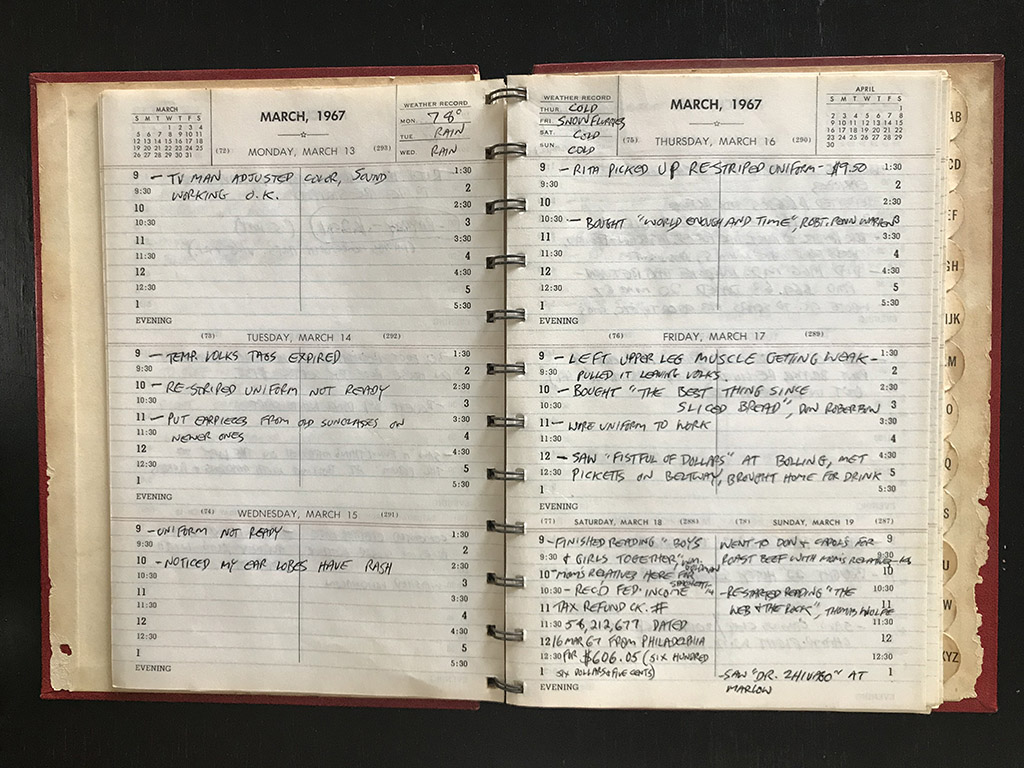 MARCH
S M T W T F S
1 2 3 4
5 6 7 8 9 10 11
12 13 14 15 16 17 18
19 20 21 22 23 24 25
26 27 28 29 30 31
MARCH, 1967
WEATHER RECORD
MON. 78°
TUE RAIN
WED RAIN
(72) MONDAY, MARCH 13 (293)
9 – TV MAN ADJUSTED COLOR, SOUND 1:30
9:30 WORKING O.K. 2
10 2:30
10:30 3
11 3:30
11:30 4
12 4:30
12:30 5
1 5:30
EVENING
(73) TUESDAY, MARCH 14 (292)
9 – TEMP. VOLKS TAGS EXPIRED 1:30
9:30 2
10 – RE-STRIPED UNIFORM NOT READY 2:30
10:30 3
11 – PUT EARPIECES FROM OLD SUNGLASSES ON 3:30
11:30 NEWER ONES 4
12 4:30
12:30 5
1 5:30
EVENING
(74) WEDNESDAY, MARCH 15 (291)
9 – UNIFORM NOT READY 1:30
9:30 2
10 – NOTICED MY EAR LOBES HAVE RASH 2:30
10:30 3
11 3:30
11:30 4
12 4:30
12:30 5
1 5:30
EVENING
WEATHER RECORD
THUR. COLD
FRI. SNOWFLURRIES
SAT. COLD
SUN. COLD
MARCH, 1967
APRIL
S M T W T F S
1
2 3 4 5 6 7 8
9 10 11 12 13 14 15
16 17 18 19 20 21 22
23 24 25 26 27 28 29
30
(75) THURSDAY, MARCH 16 (290)
9 – RITA PICKED UP RE-STRIPED UNIFORM – $9.50 1:30
9:30 2
10 2:30
10:30 – BOUGHT "WORLD ENOUGH AND TIME", ROBT. PENN WARREN 3
11 3:30
11:30 4
12 4:30
12:30 5
1 5:30
EVENING
(76) FRIDAY, MARCH 17 (289)
9 – LEFT UPPER LEG MUSCLE GETTING WEAK – 1:30
9:30 PULLED IT LEAVING VOLKS. 2
10 – BOUGHT "THE BEST THING SINCE 2:30
10:30 SLICED BREAD", DON ROBERTSON 3
11 – WORE UNIFORM TO WORK 3:30
11:30 4
12 – SAW "FISTFUL OF DOLLARS" AT BOLLING, MET 4:30
12:30 PICKETTS ON BELTWAY, BROUGHT HOME FOR DRINK 5
1 5:30
EVENING
(77) SATURDAY, MARCH 18 (288)
9 – FINISHED READING "BOYS
9:30 & GIRLS TOGETHER", WM. GOLDMAN
10 MOM'S RELATIVES HERE FOR SPAGHETTI
10:30 – REC'D FED. INCOME
11 TAX REFUND CK. #
11:30 58,212,677 DATED
12 16 MAR 67 FROM PHILADELPHIA
12:30 FOR $606.05 (SIX HUNDRED
1 SIX DOLLARS & FIVE CENTS)
EVENING
(78) SUNDAY, MARCH 19 (287)
WENT TO DON & CAROLS FOR 9
ROAST BEEF WITH MOM'S RELATIVES 9:30
10
– RESTARTED READING "THE
WEB & THE ROCK", THOMAS WOLFE 11:30
12
12:30
– SAW "DR. ZHIVAGO" AT 1
MARLOW
AB
CD
EF
GH
IJK
LM
O
Q
S
U
W
XYZ